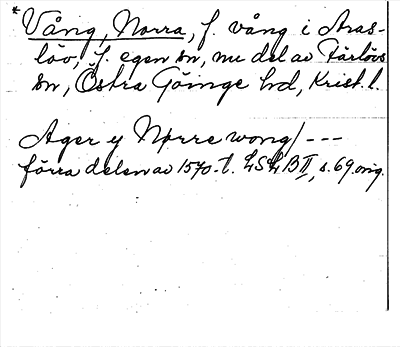 * Vång, Norra, f. vång i Aras-
löv, f. egen sn, nu del av Färlövs
sn, Östra Göinge hd, Krist. l.
Ager y Nørre wong/ ---
förra delen av 1570-t. LSLB II, s. 69 orig.